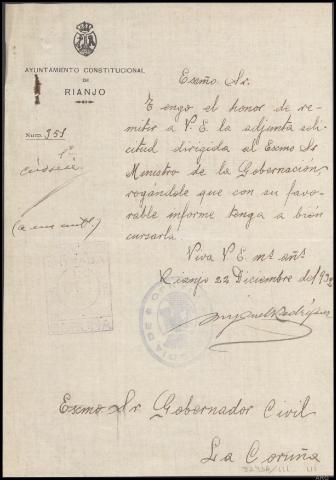 AYUNTAMIENTO CONSTITUCIONAL
DE
RIANJO
Núm. 351
Exsmo. Sr.
Tengo el honor de re-
mitir a V. E. la adjunta soli-
citud dirigida al Exsmo Sr
Ministro de la Gobernación,
rogándole que con su favo-
rable informe tenga a bien
cursarla.
Viva V. E. ms. añs.
Rianjo 22 Diciembre de 1932
Miguel Rodríguez
Exsmo Sr Gobernador Civil
La Coruña